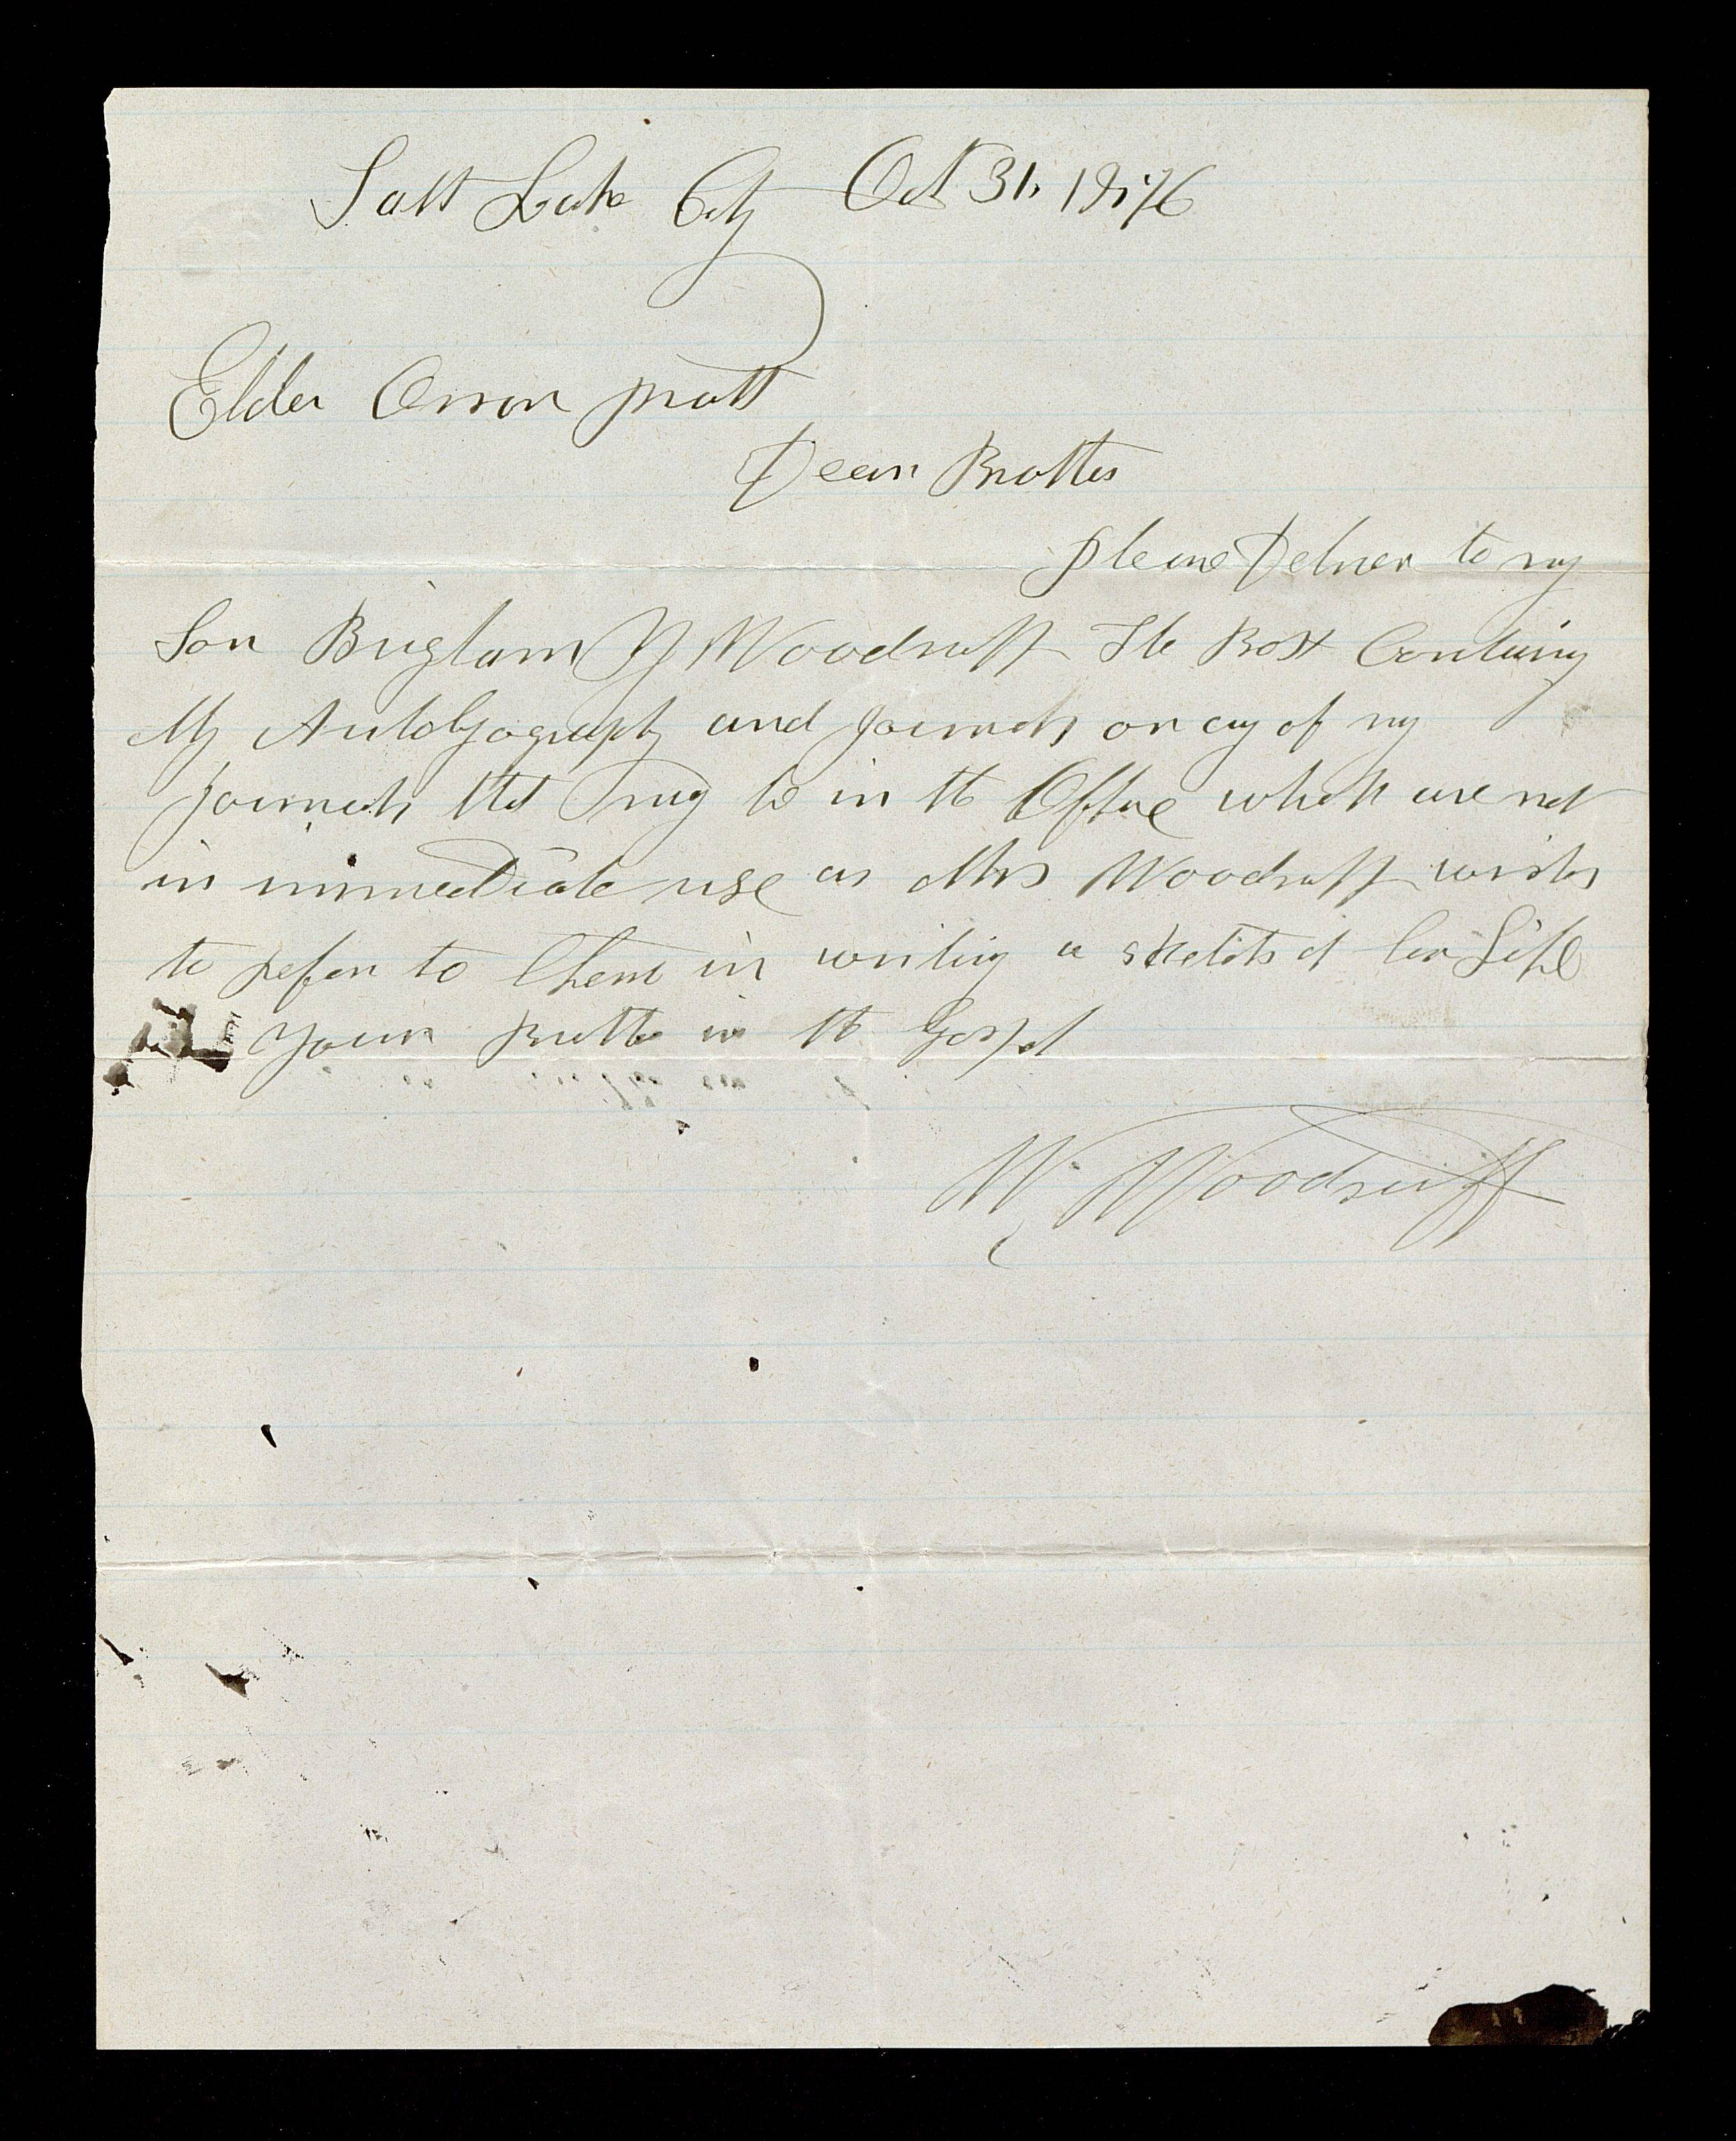 Salt Lake City Oct 31, 1876
Elder Orson Pratt
Dear Brother
Please Deliver to my
Son Brigham Y Woodruff The Box Containing
My Autobyography and Journals or any of my
Journals that may be in the Office which are not
in immediate use as Mrs Woodruff wishes
to refer to them in writing a sketch of her Life
Your Brother in the Gospel
W. Woodruff